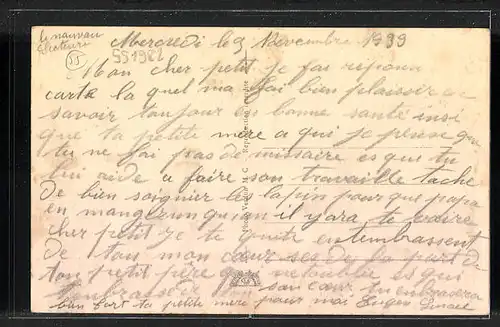 le nauvau
Electeurs
55
551922
Mercredi le 9 Novembre 1939
Mon cher petit je fai réponce
carte la quel ma fai bien plaisir de
savoir toujour en bonne santé insi
que ta petite mère a qui je pense que
tu ne fai pas de missaire es qui tu
lui aide a faire son travaille tache
de bien soignier les lapin pour que papa
en mange un qu'en il yara
cher petit je te quite en tembrassent
de ton mon cœur de la part de
ton petit père qui ne toublie es qui
tembrasse son cœur tu embrasera
bien fort ta petite mère pour moi Eugen